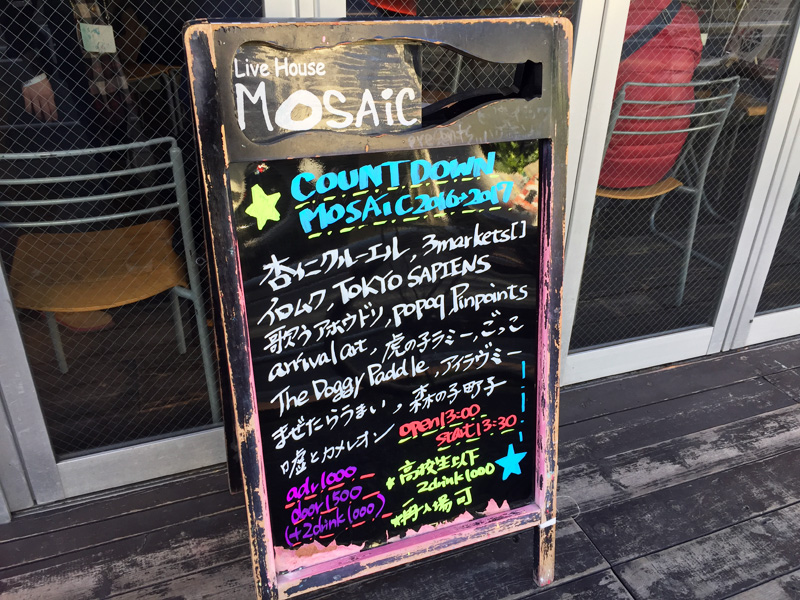 Live House
MOSAiC
COUNT DOWN
MOSAiC 2016→2017
杏仁クルーエル, 3markets[]
イロムク, TOKYO SAPIENS
歌うアホウドリ, popoq, Pinpoints
arrival art, 虎の子ラミー, ごっこ
The Doggy Paddle, アイラヴミー
まぜたらうまい, 森の子町子
嘘とカメレオン
open 13:00
start 13:30
adv 1000
door 1500
(+2drink 1000)
*高校生以下
2drink 1000
*再入場可